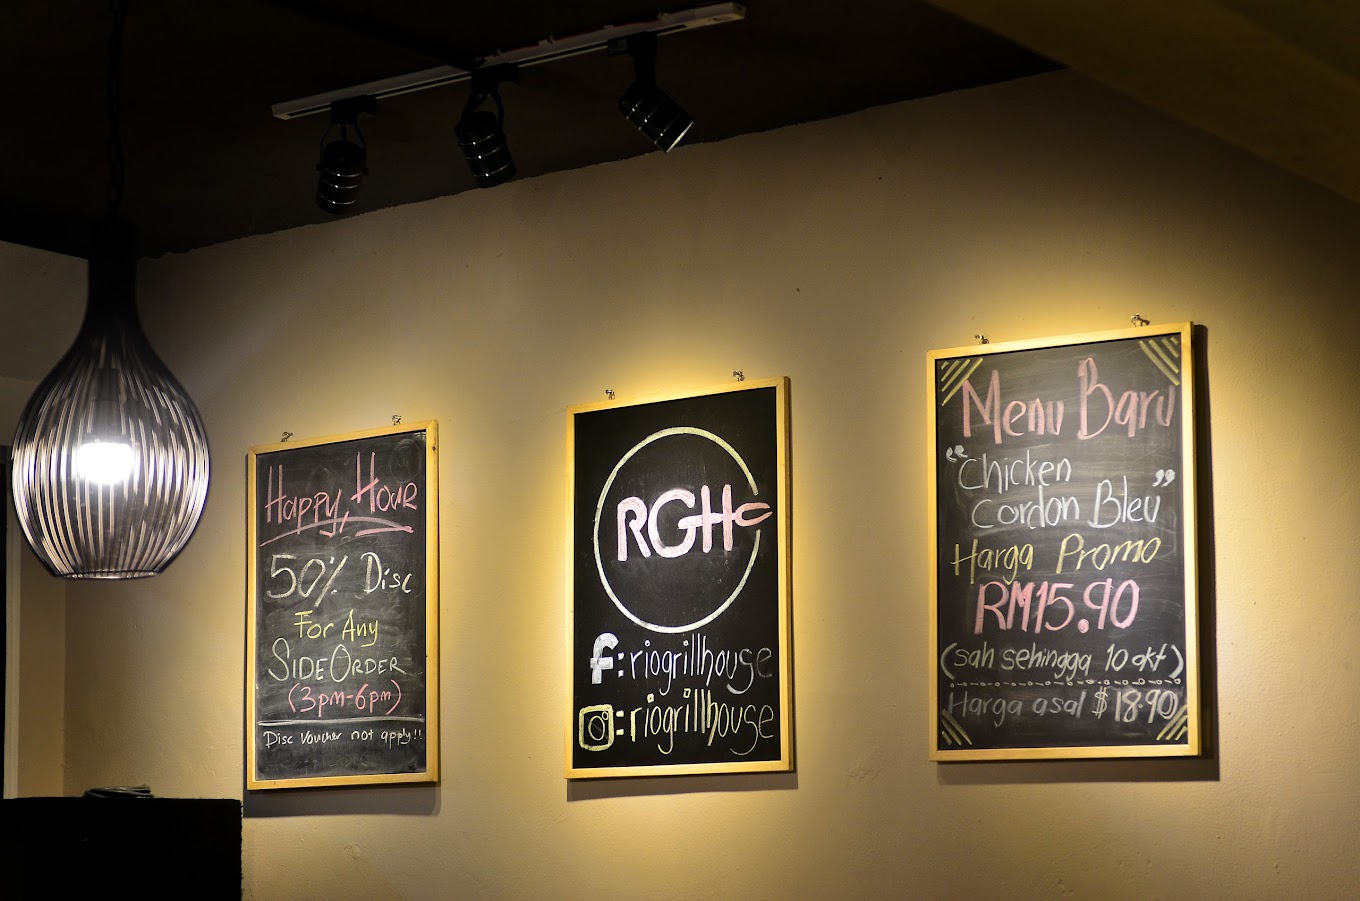 Happy Hour
50% Disc
For Any
SIDE ORDER
(3pm-6pm)
Disc Voucher not apply!!
RGH
f:riogrillhouse
:riogrillhouse
Menu Baru
"Chicken
Cordon Bleu"
Harga Promo
RM15.90
(sah sehingga 10 okt)
Harga asal $18.90